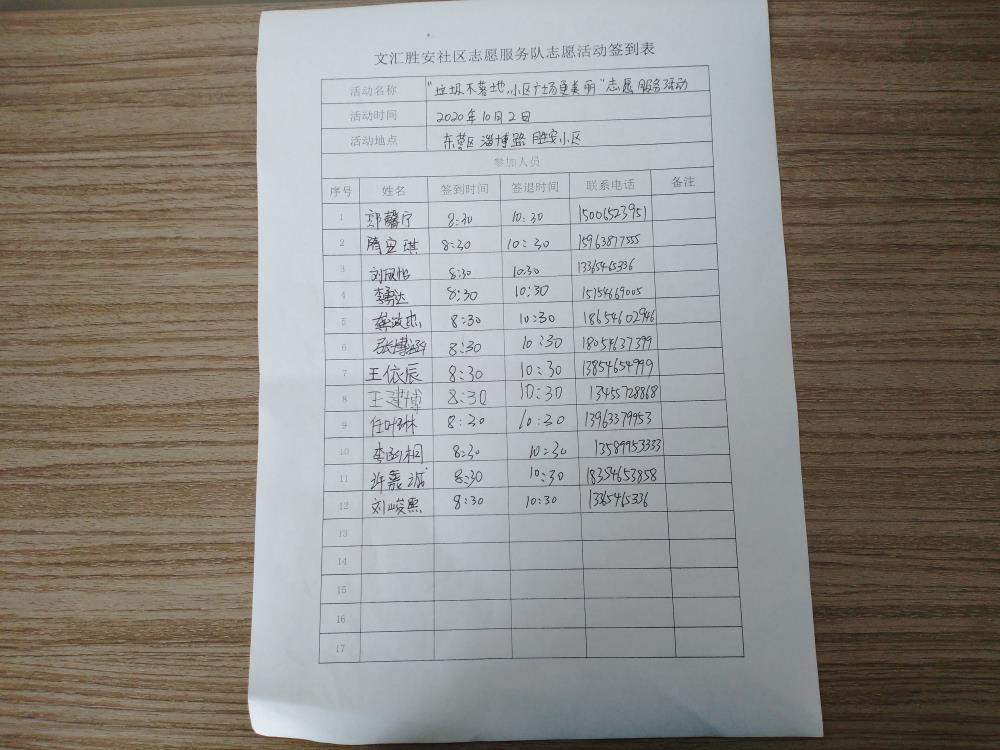 文汇胜安社区志愿服务队志愿活动签到表
活动名称 "垃圾不落地,小区广场更美丽"志愿服务活动
活动时间 2020年10月2日
活动地点 东营区淄博路胜安小区
参加人员
序号 姓名 签到时间 签退时间 联系电话 备注
1 郭馨宁 8:30 10:30 15006523951
2 隋宝琪 8:30 10:30 15963877555
3 刘风怡 8:30 10:30 13365465336
4 李勇达 8:30 10:30 15154669005
5 8:30 10:30 18654602946
6 张博涵 8:30 10:30 18054637399
7 王依辰 8:30 10:30 13854654999
8 王建博 8:30 10:30 13455728868
9 任叶琳 8:30 10:30 13963379953
10 李雨桐 8:30 10:30 13589953333
11 许嘉诚 8:30 10:30 18354653858
12 刘峻熙 8:30 10:30 13365465336
13
14
15
16
17